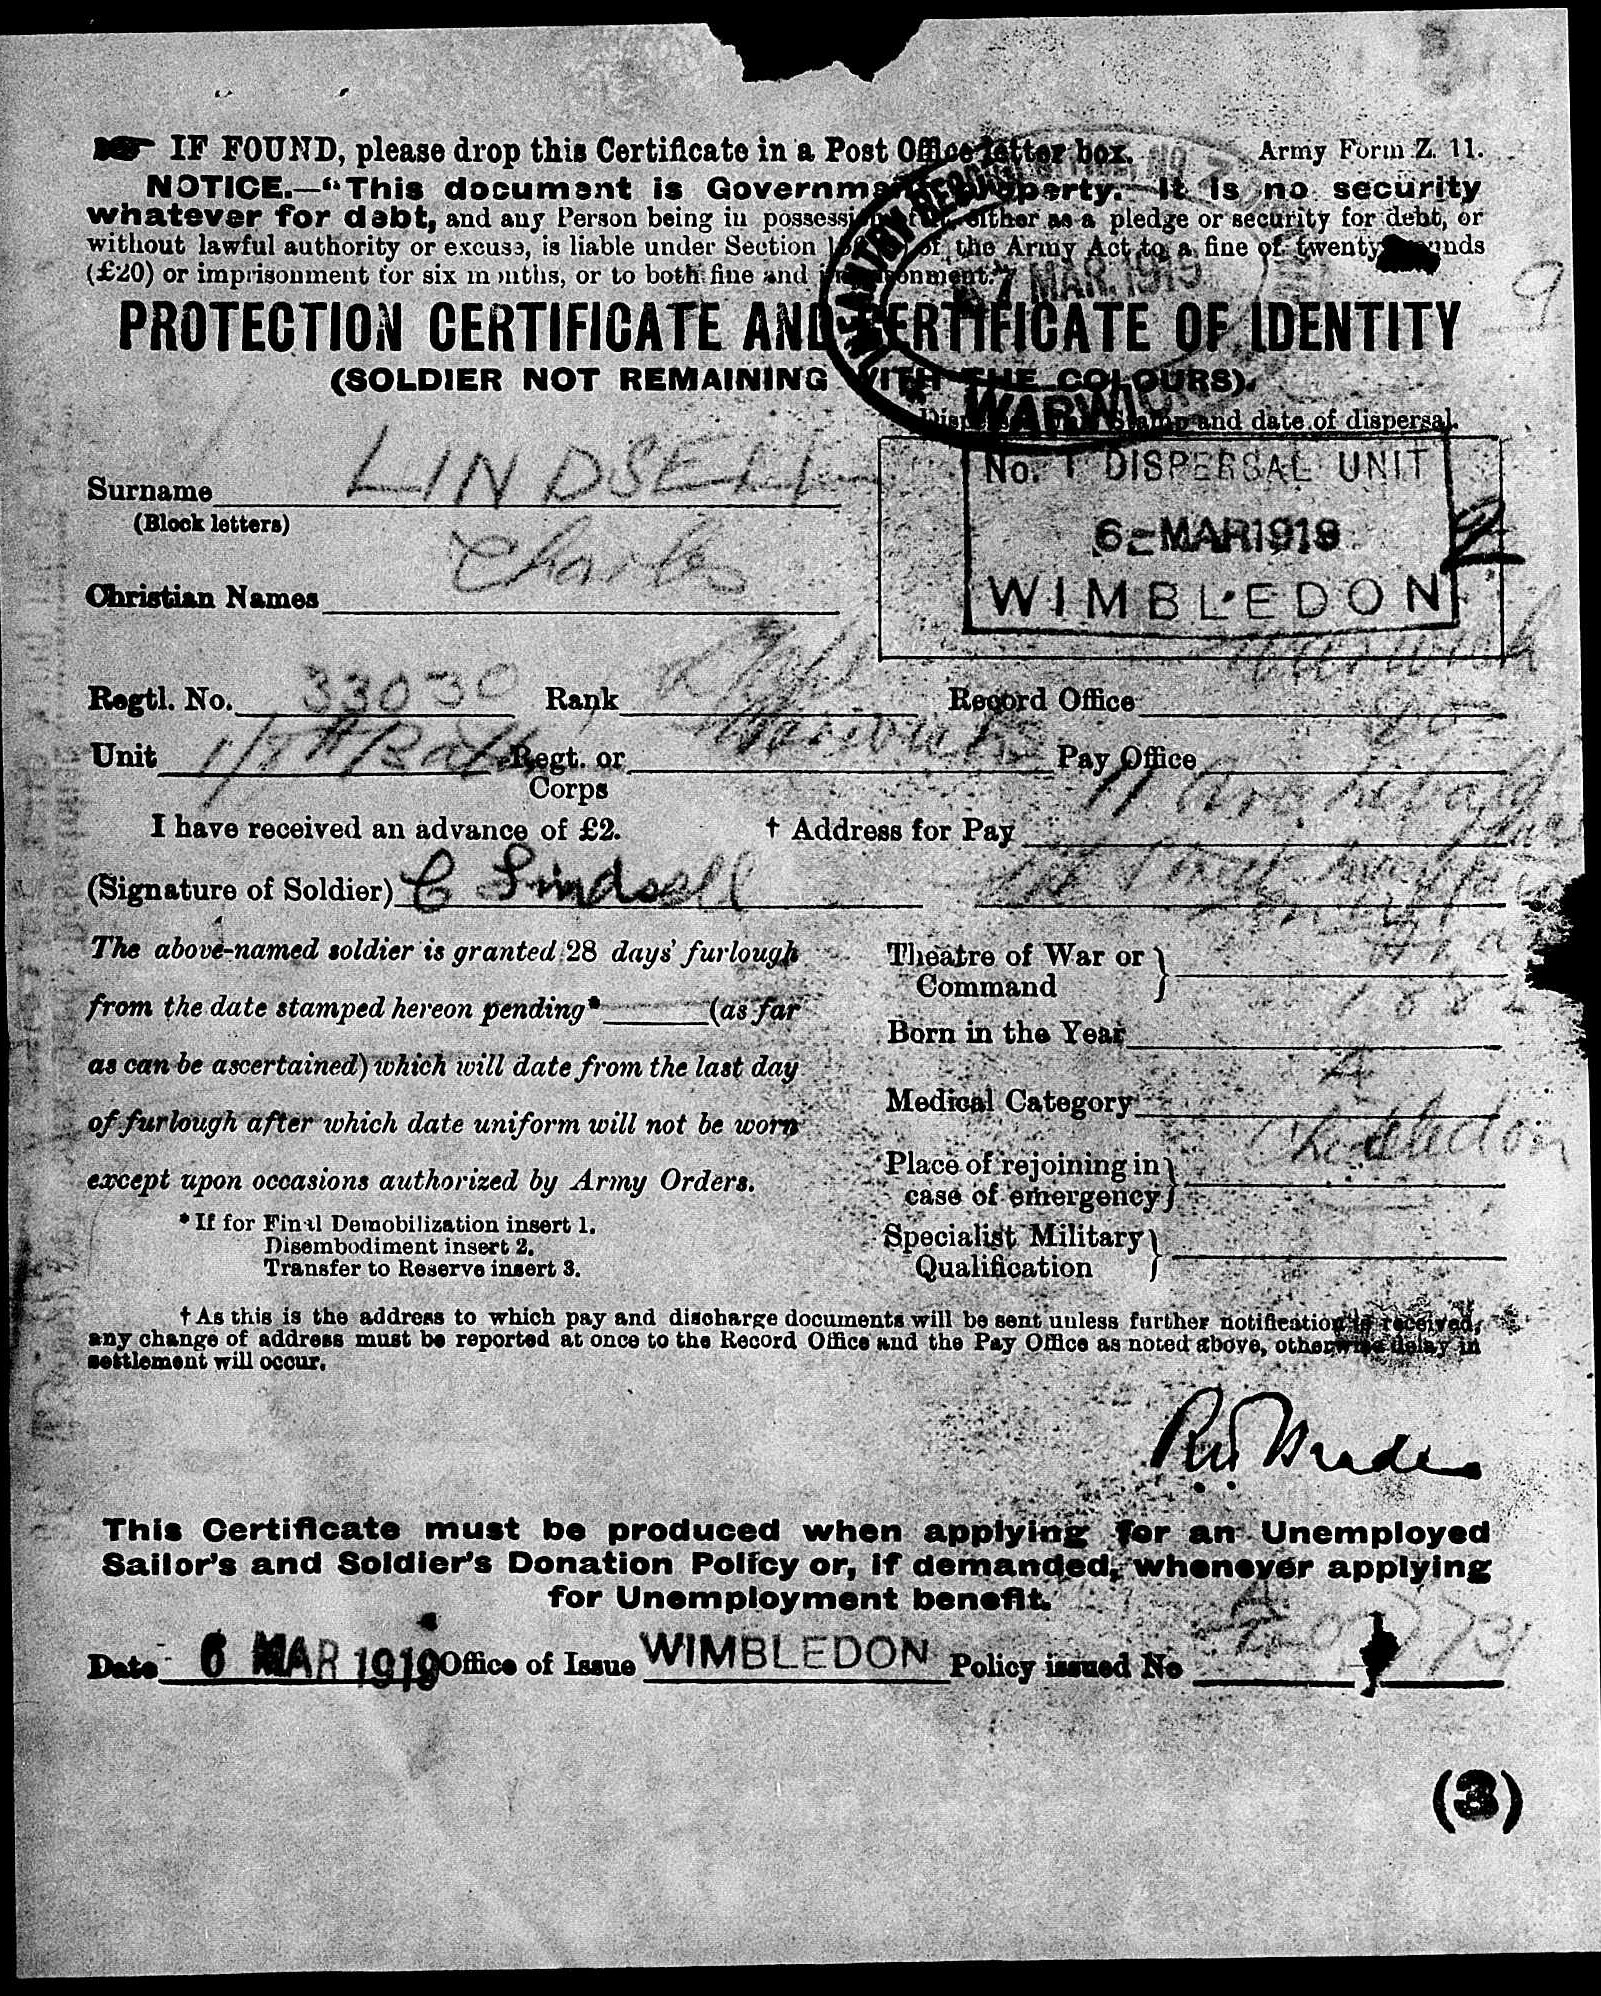 IF FOUND, please drop this Certificate in a Post Office letter box. Army Form Z. 11.
NOTICE.—"This document is Government property. It is no security
whatever for debt, and any Person being in possession of it, either as a pledge or security for debt, or
without lawful authority or excuse, is liable under Section of the Army Act to a fine of twenty pounds
(£20) or imprisonment for six months, or to both fine and imprisonment."
INFANTRY RECORD
7 MAR. 1919
WARWICK
PROTECTION CERTIFICATE AND CERTIFICATE OF IDENTITY
9
(SOLDIER NOT REMAINING WITH THE COLOURS).
Stamp and date of dispersal.
No. 1 DISPERSAL UNIT
6 - MAR 1919
WIMBLEDON
2
Surname LINDSELL
(Block letters)
Christian Names Charles
Regtl. No. 33030 Rank Record Office Warwick
Unit 1/8th Batt Regt. or Corps Warwicks Pay Office Do
I have received an advance of £2. † Address for Pay 11
(Signature of Soldier) C Lindsell
The above-named soldier is granted 28 days' furlough
from the date stamped hereon pending* (as far
as can be ascertained) which will date from the last day
of furlough after which date uniform will not be worn
except upon occasions authorized by Army Orders.
* If for Final Demobilization insert 1.
Disembodiment insert 2.
Transfer to Reserve insert 3.
Theatre of War or Command
Born in the Year 1882
Medical Category A
Place of rejoining in case of emergency
Specialist Military Qualification
† As this is the address to which pay and discharge documents will be sent unless further notification is received,
any change of address must be reported at once to the Record Office and the Pay Office as noted above, otherwise delay in
settlement will occur.
This Certificate must be produced when applying for an Unemployed
Sailor's and Soldier's Donation Policy or, if demanded, whenever applying
for Unemployment benefit.
Date 6 MAR 1919 Office of Issue WIMBLEDON Policy issued No
(3)